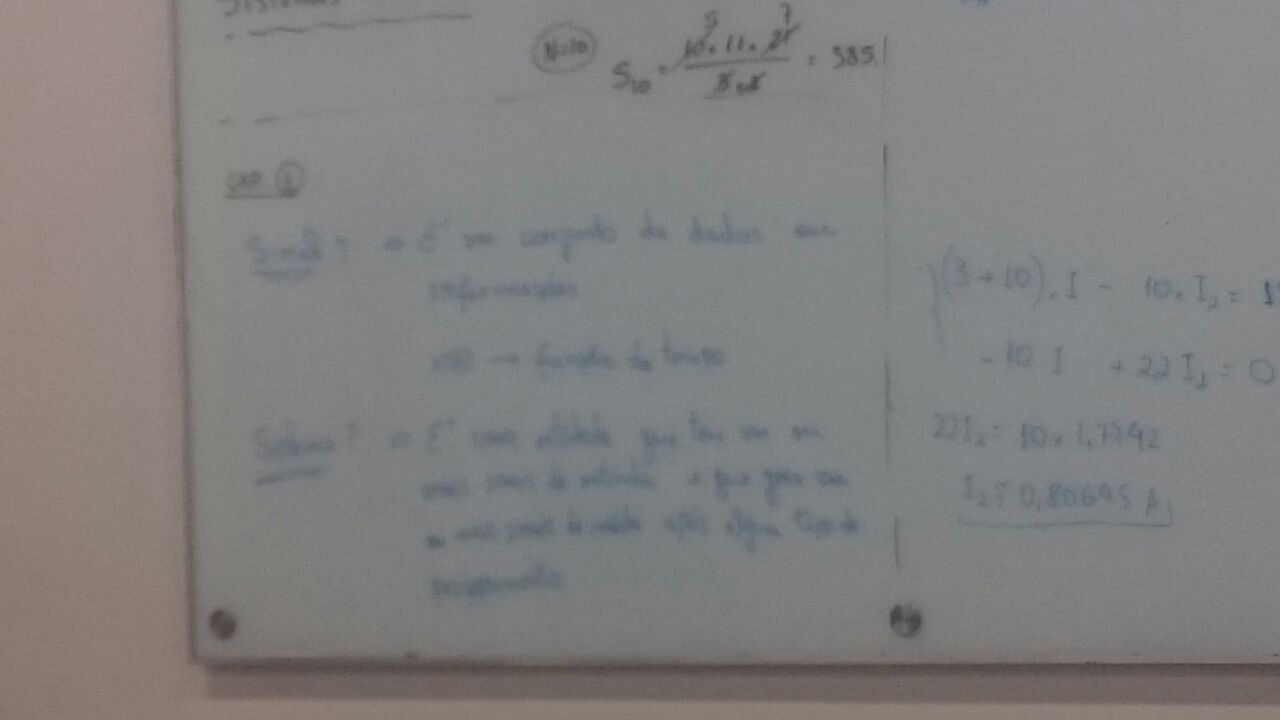 Sistemas
N=10 S₁₀ = 10.11.21 = 385
CAP 1
Sinal? → É um conjunto de dados ou
informações
→ função do tempo
Sistema? → É uma entidade que tem um ou
mais sinais de entrada e que gera um
ou mais sinais de saída após algum tipo de
(3+10).I - 10.I₂ =
-10 I + 22 I₂ = 0
22I₂ = 10.1,7742
I₂ = 0,80645 A